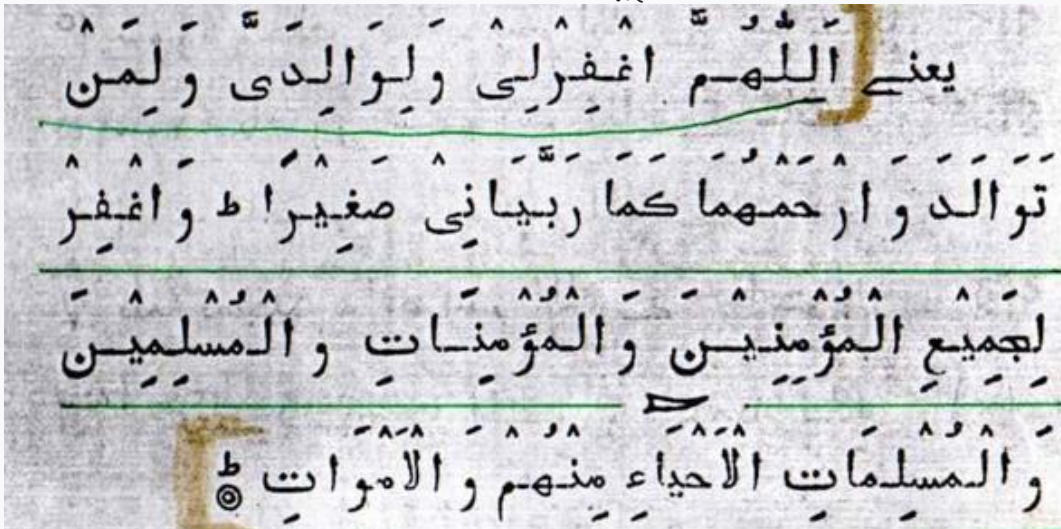 یعنے اَللّٰهُمَّ اغْفِرْلِیْ وَلِوَالِدَیَّ وَلِمَنْ
تَوَالَدَ وَارْحَمْهُمَا كَمَا رَبَّيَانِیْ صَغِيْرًا ط وَاغْفِرْ
لِجَمِيْعِ الْمُؤْمِنِيْنَ وَالْمُؤْمِنَاتِ وَالْمُسْلِمِيْنَ
وَالْمُسْلِمَاتِ الْاَحْيَاءِ مِنْهُمْ وَالْاَمْوَاتِ ط